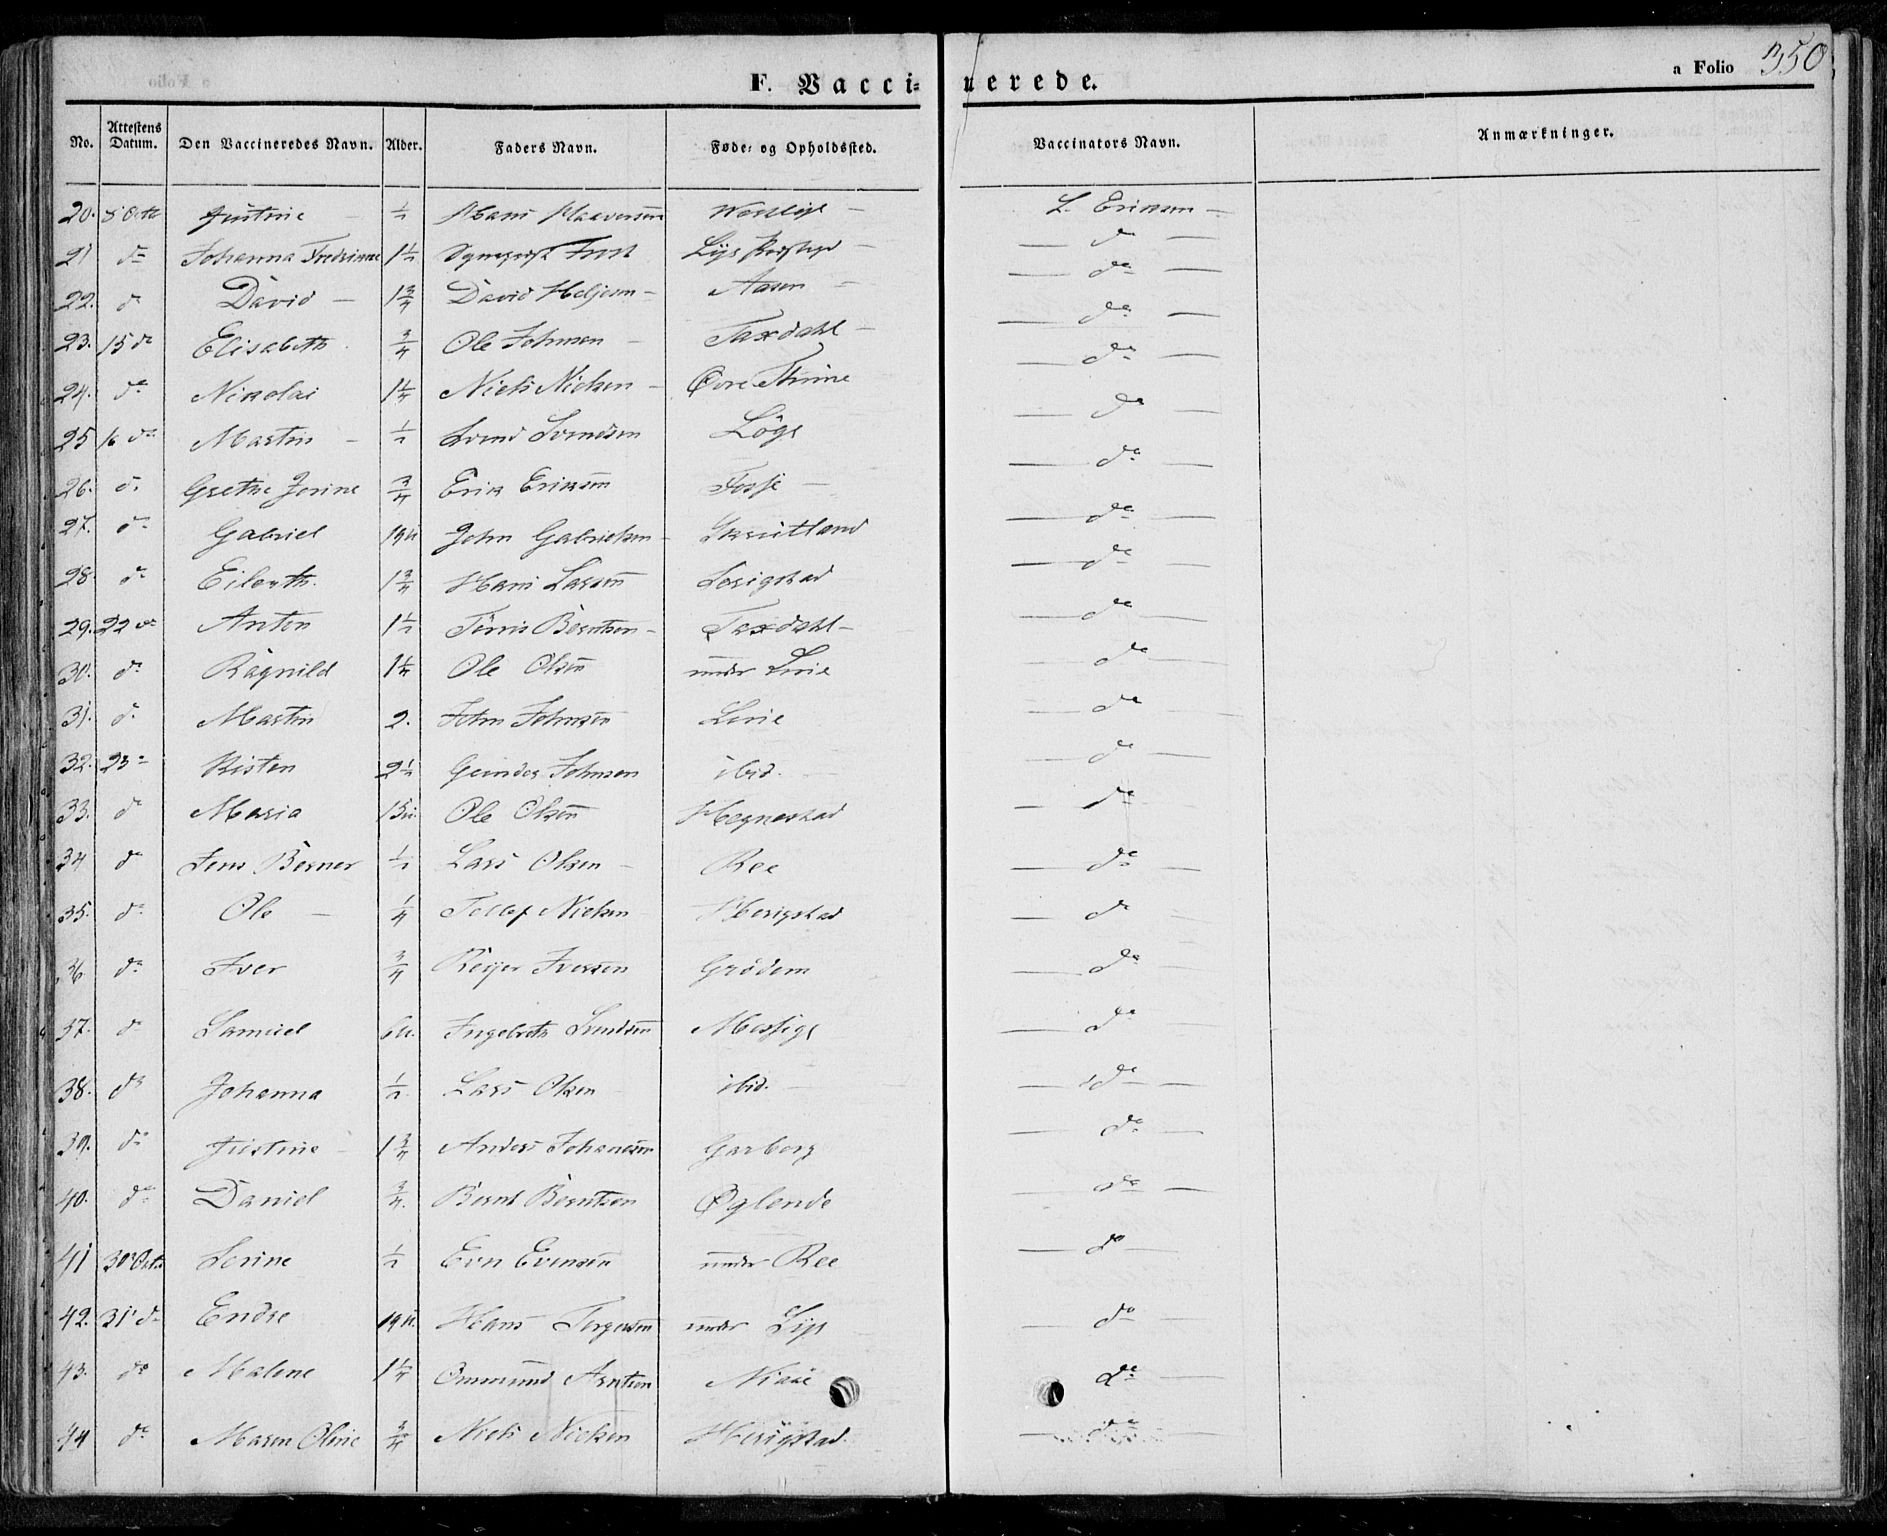 F. Vacci= nerede. a Folio 350
No. Attestens Datum. Den Vaccineredes Navn. Alder. Faders Navn. Føde= og Opholdssted. Vaccinators Navn. Anmærkninger.
20. 8 Octb Justine — ½ Hans L. Eriksen —
21 do Johanna Fredrikine 1½ Lÿe — do —
22. do David — 1¾ David Heljesen — Aasen — — do —
23. 15 do Elisabeth ¾ Ole Johnsen — Taxdahl — — do —
24. do Nikolai 1¼ Niels Nielsen — Øvre Thime — do —
25 16 do Martin — ½ Svend Svendsen Löge — do —
26. do Grethe Jorine ¾ Erik Eriksen Fosse — — do —
27. do Gabriel 19 U John Gabrielsen — Skrudland — do —
28. do Eilerth. 1¾ Hans Larsen Serigstad — do —
29. 22 do Anton 1½ Törris Berntsen — Taxdahl — — do —
30. do Ragnild 1¼ Ole Olsen under Line — do —
31. do Martin 2. John Johnsen Line — do —
32. 23 Kisten 2½ Gunder Johnsen ibid. — do —
33. do Maria 15 u. Ole Olsen Hognestad — do
34 do Jens Berner ½ Lars Olsen — Ree — do —
35. do Ole — ¼ Tollef Nielsen Herigstad — do —
36 do Iver ¾ Reijer Iversen Grödem — do —
37. do Samuel 6 u. Ingebreth Mossige — do —
38. do Johanna ½ Lars Olsen ibid. — — do —
39. do Justine — 1¾ Anders Johanesen Garborg — do —
40. do Daniel ¾. Bernt Berntsen Øglende — do —
41 30 Octb Serine ½ Even Evensen under Ree — do —
42. 31 do Endre 19 U. Hans Torgersen under Lÿe — do —
43. do Malene 1¼ Ommund Arntsen Niaae — do —
44 do Maren Oline ¾ Niels Nielsen Herigstad. — do